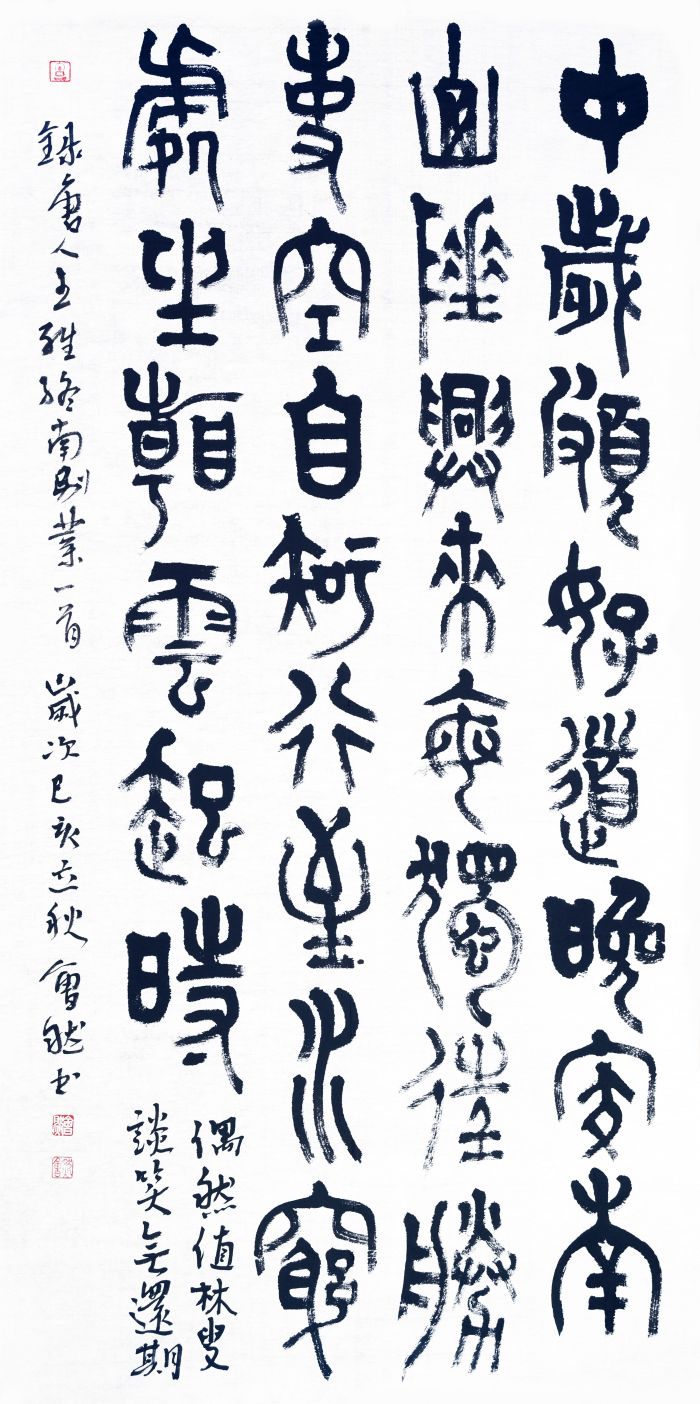 中歲頗好道晚家南
山陲興來每獨往勝
事空自知行到水窮
處坐看雲起時
偶然值林叟
談笑无還期
錄唐人王維終南別業一首 歲次己亥立秋 然书